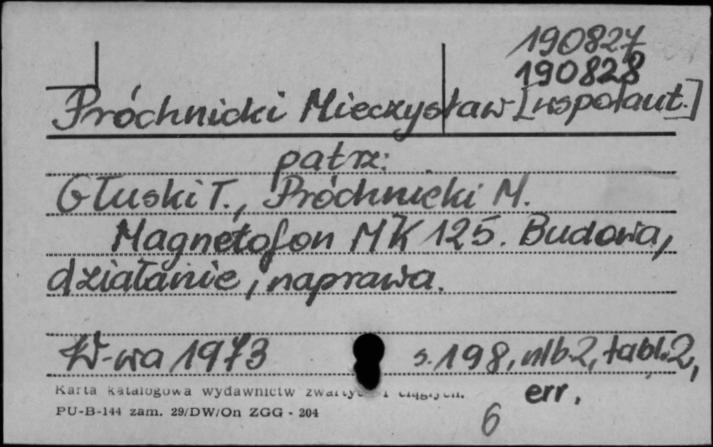 190827
190828
Próchnicki Mieczysław [współaut.]
patrz:
Głuski T., Próchnicki M.
Magnetofon MK 125. Budowa,
działanie, naprawa.
W-wa 1973 s. 198, nlb. 2, tabl. 2,
err.
Karta katalogowa wydawnictw zwartych i ciągłych.
PU-B-144 zam. 29/DW/On ZGG - 204
6